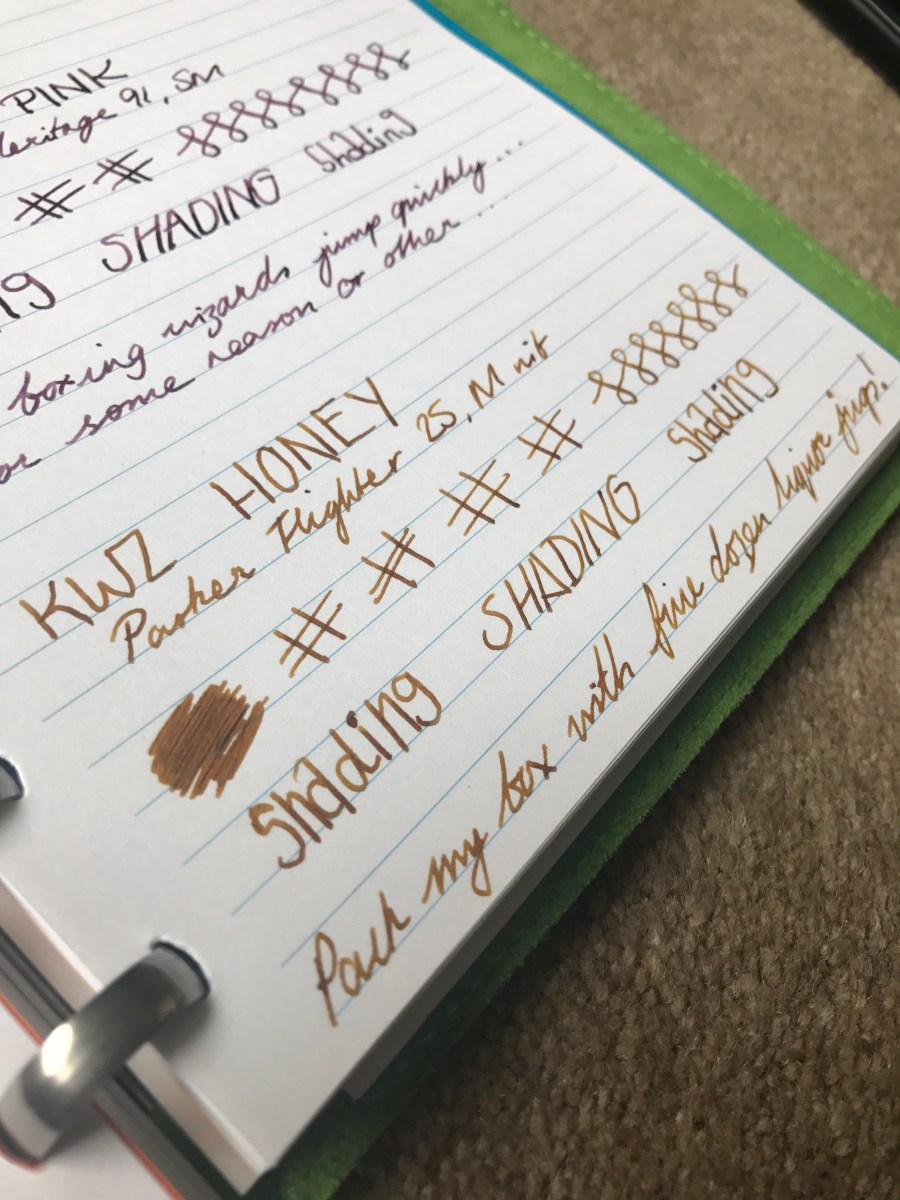 PINK
Heritage 91, SM
# # 8888888
SHADING Shading
boxing wizards jump quickly...
some reason or other...
KWZ HONEY
Parker Flighter 25, M nib
# # # # 8888888
Shading SHADING Shading
Pack my box with five dozen liquor jugs!